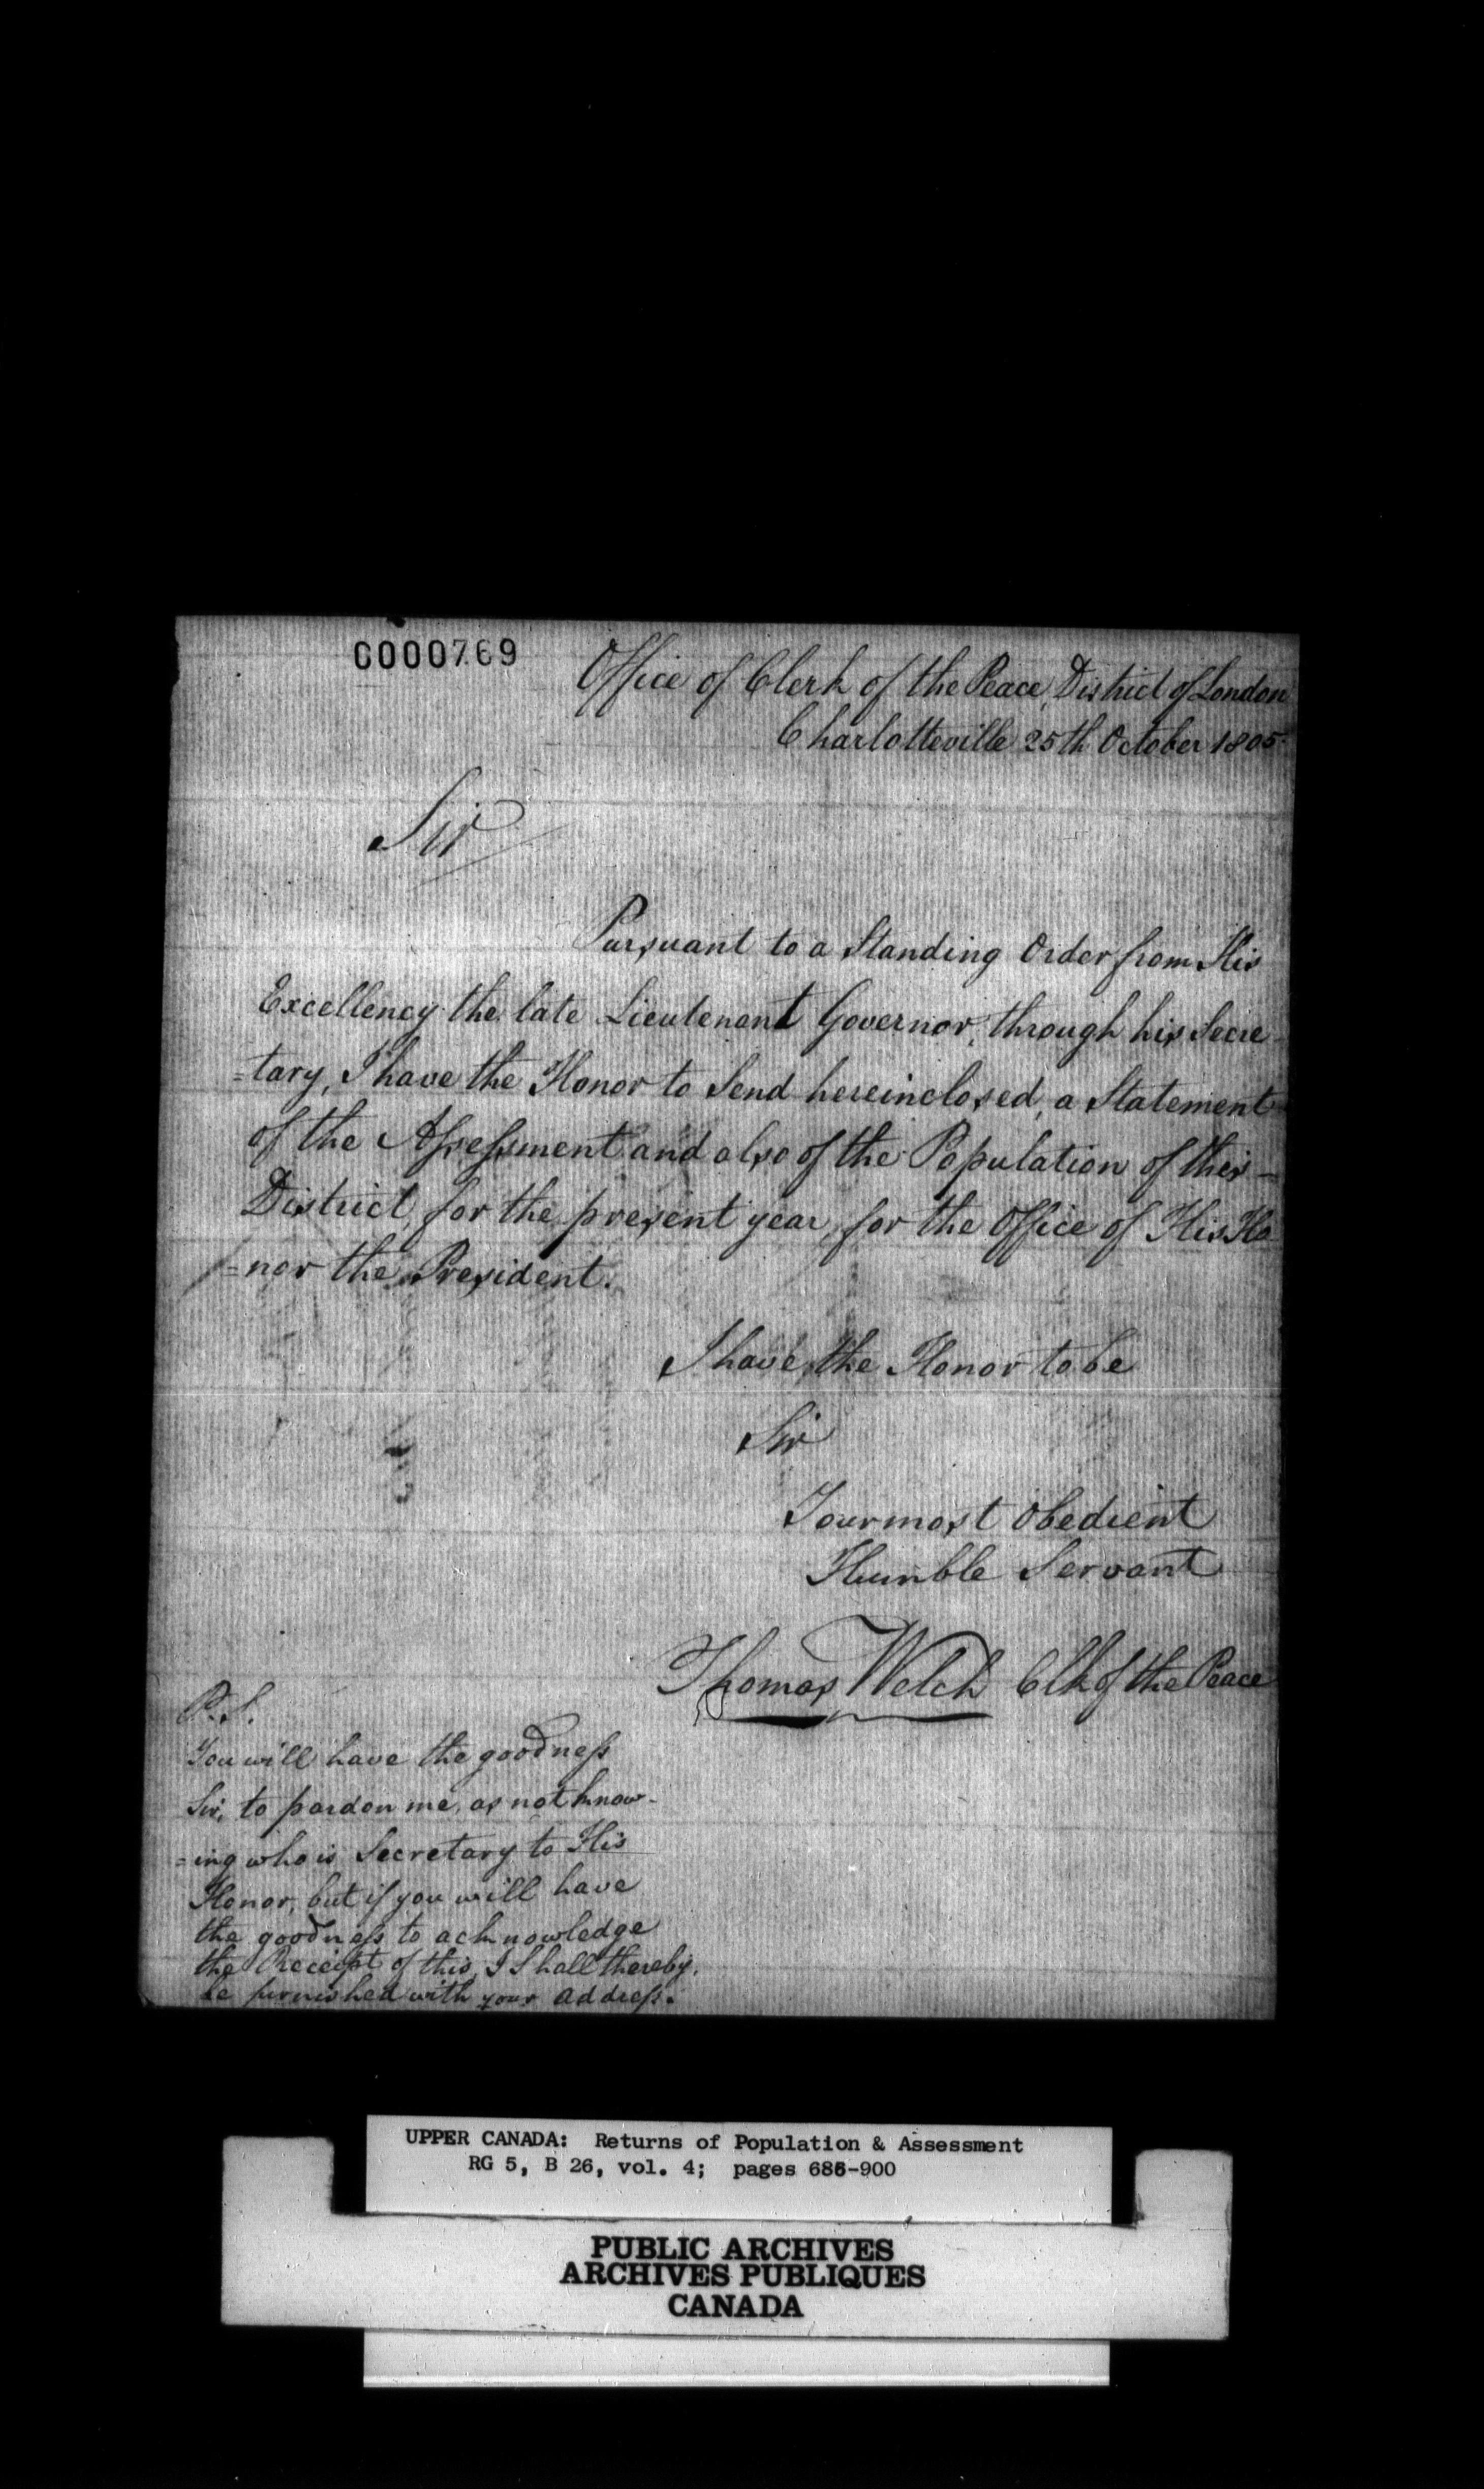 C000769
Office of Clerk of the Peace, District of London
Charlotteville 25th October 1805.
Sir
Pursuant to a Standing Order from His
Excellency the late Lieutenant Governor, through his Secre
=tary, I have the Honor to Send hereinclosed, a Statement
of the Assessment and also of the Population of this
District, for the present year, for the Office of His Ho
=nor the President.
I have the Honor to be
Sir
Your most Obedient
Humble Servant
Thomas Welch Clk of the Peace
P.S.
You will have the goodness
Sir, to pardon me, as not know-
=ing who is Secretary to His
Honor, but if you will have
the goodness to acknowledge
the Receipt of this, I Shall thereby
be furnished with your address.
UPPER CANADA: Returns of Population & Assessment
RG 5, B 26, vol. 4; pages 686-900
PUBLIC ARCHIVES
ARCHIVES PUBLIQUES
CANADA